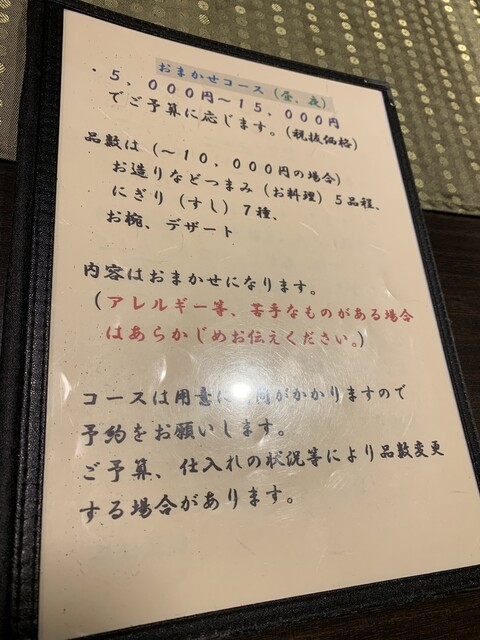 おまかせコース（昼、夜）
・５，０００円〜１５，０００円
でご予算に応じます。（税抜価格）
品数は（〜１０，０００円の場合）
お造りなどつまみ（お料理）５品程、
にぎり（すし）７種、
お椀、デザート
内容はおまかせになります。
（アレルギー等、苦手なものがある場合
はあらかじめお伝えください。）
コースは用意に間がかかりますので
予約をお願いします。
ご予算、仕入れの状況等により品数変更
する場合があります。